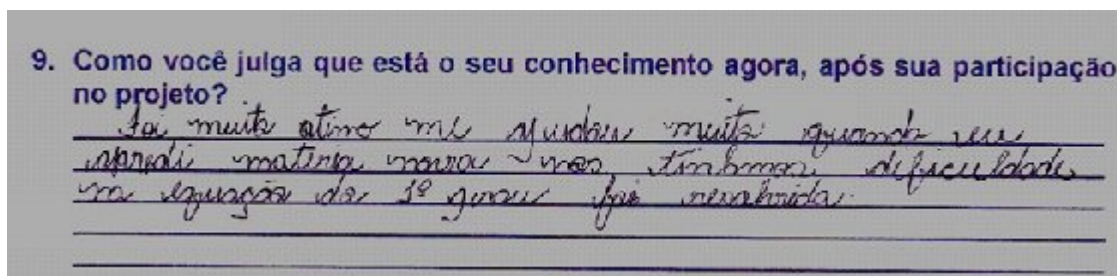 9. Como você julga que está o seu conhecimento agora, após sua participação
no projeto?
Foi muito otimo me ajudou muito quando eu
aprendi materia nova nos tinhamos deficuldade
na equação do 1º grau foi resolvida.